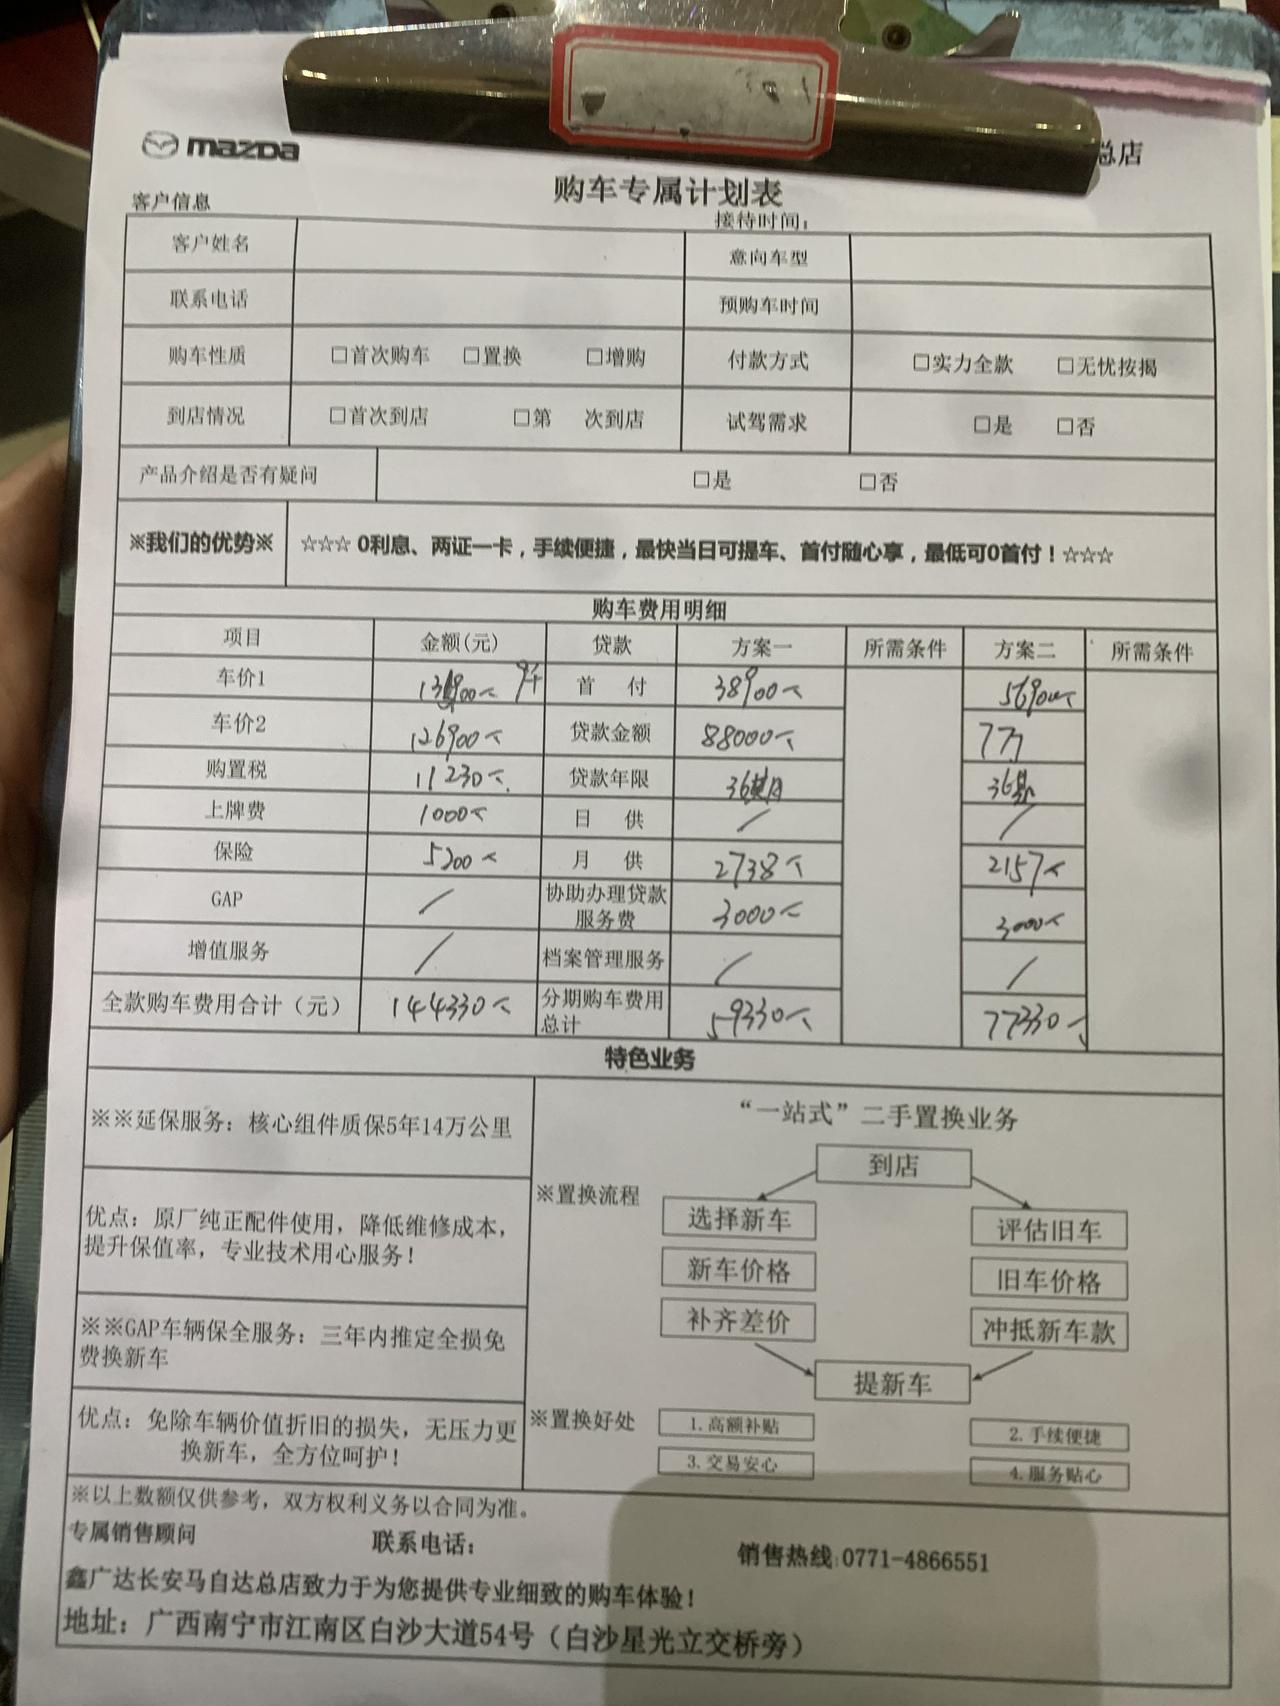 mazda
总店
购车专属计划表
客户信息
接待时间：
客户姓名 意向车型
联系电话 预购车时间
购车性质 □首次购车 □置换 □增购 付款方式 □实力全款 □无忧按揭
到店情况 □首次到店 □第 次到店 试驾需求 □是 □否
产品介绍是否有疑问 □是 □否
※我们的优势※ ☆☆☆ 0利息、两证一卡，手续便捷，最快当日可提车、首付随心享，最低可0首付！☆☆☆
购车费用明细
项目 金额(元) 贷款 方案一 所需条件 方案二 所需条件
车价1 9千 首 付 38900 56900
车价2 126900 贷款金额 88000 7万
购置税 11230 贷款年限 36期 36期
上牌费 1000 日 供 / /
保险 5200 月 供 2738 2157
GAP / 协助办理贷款服务费 3000 3000
增值服务 / 档案管理服务 / /
全款购车费用合计（元） 144330 分期购车费用总计 59330 77330
特色业务
※※延保服务：核心组件质保5年14万公里
优点：原厂纯正配件使用，降低维修成本，
提升保值率，专业技术用心服务！
※※GAP车辆保全服务：三年内推定全损免
费换新车
优点：免除车辆价值折旧的损失，无压力更
换新车，全方位呵护！
“一站式”二手置换业务
到店
※置换流程
选择新车 评估旧车
新车价格 旧车价格
补齐差价 冲抵新车款
提新车
※置换好处 1.高额补贴 2.手续便捷
3.交易安心 4.服务贴心
※以上数额仅供参考，双方权利义务以合同为准。
专属销售顾问 联系电话： 销售热线:0771-4866551
鑫广达长安马自达总店致力于为您提供专业细致的购车体验！
地址：广西南宁市江南区白沙大道54号（白沙星光立交桥旁）